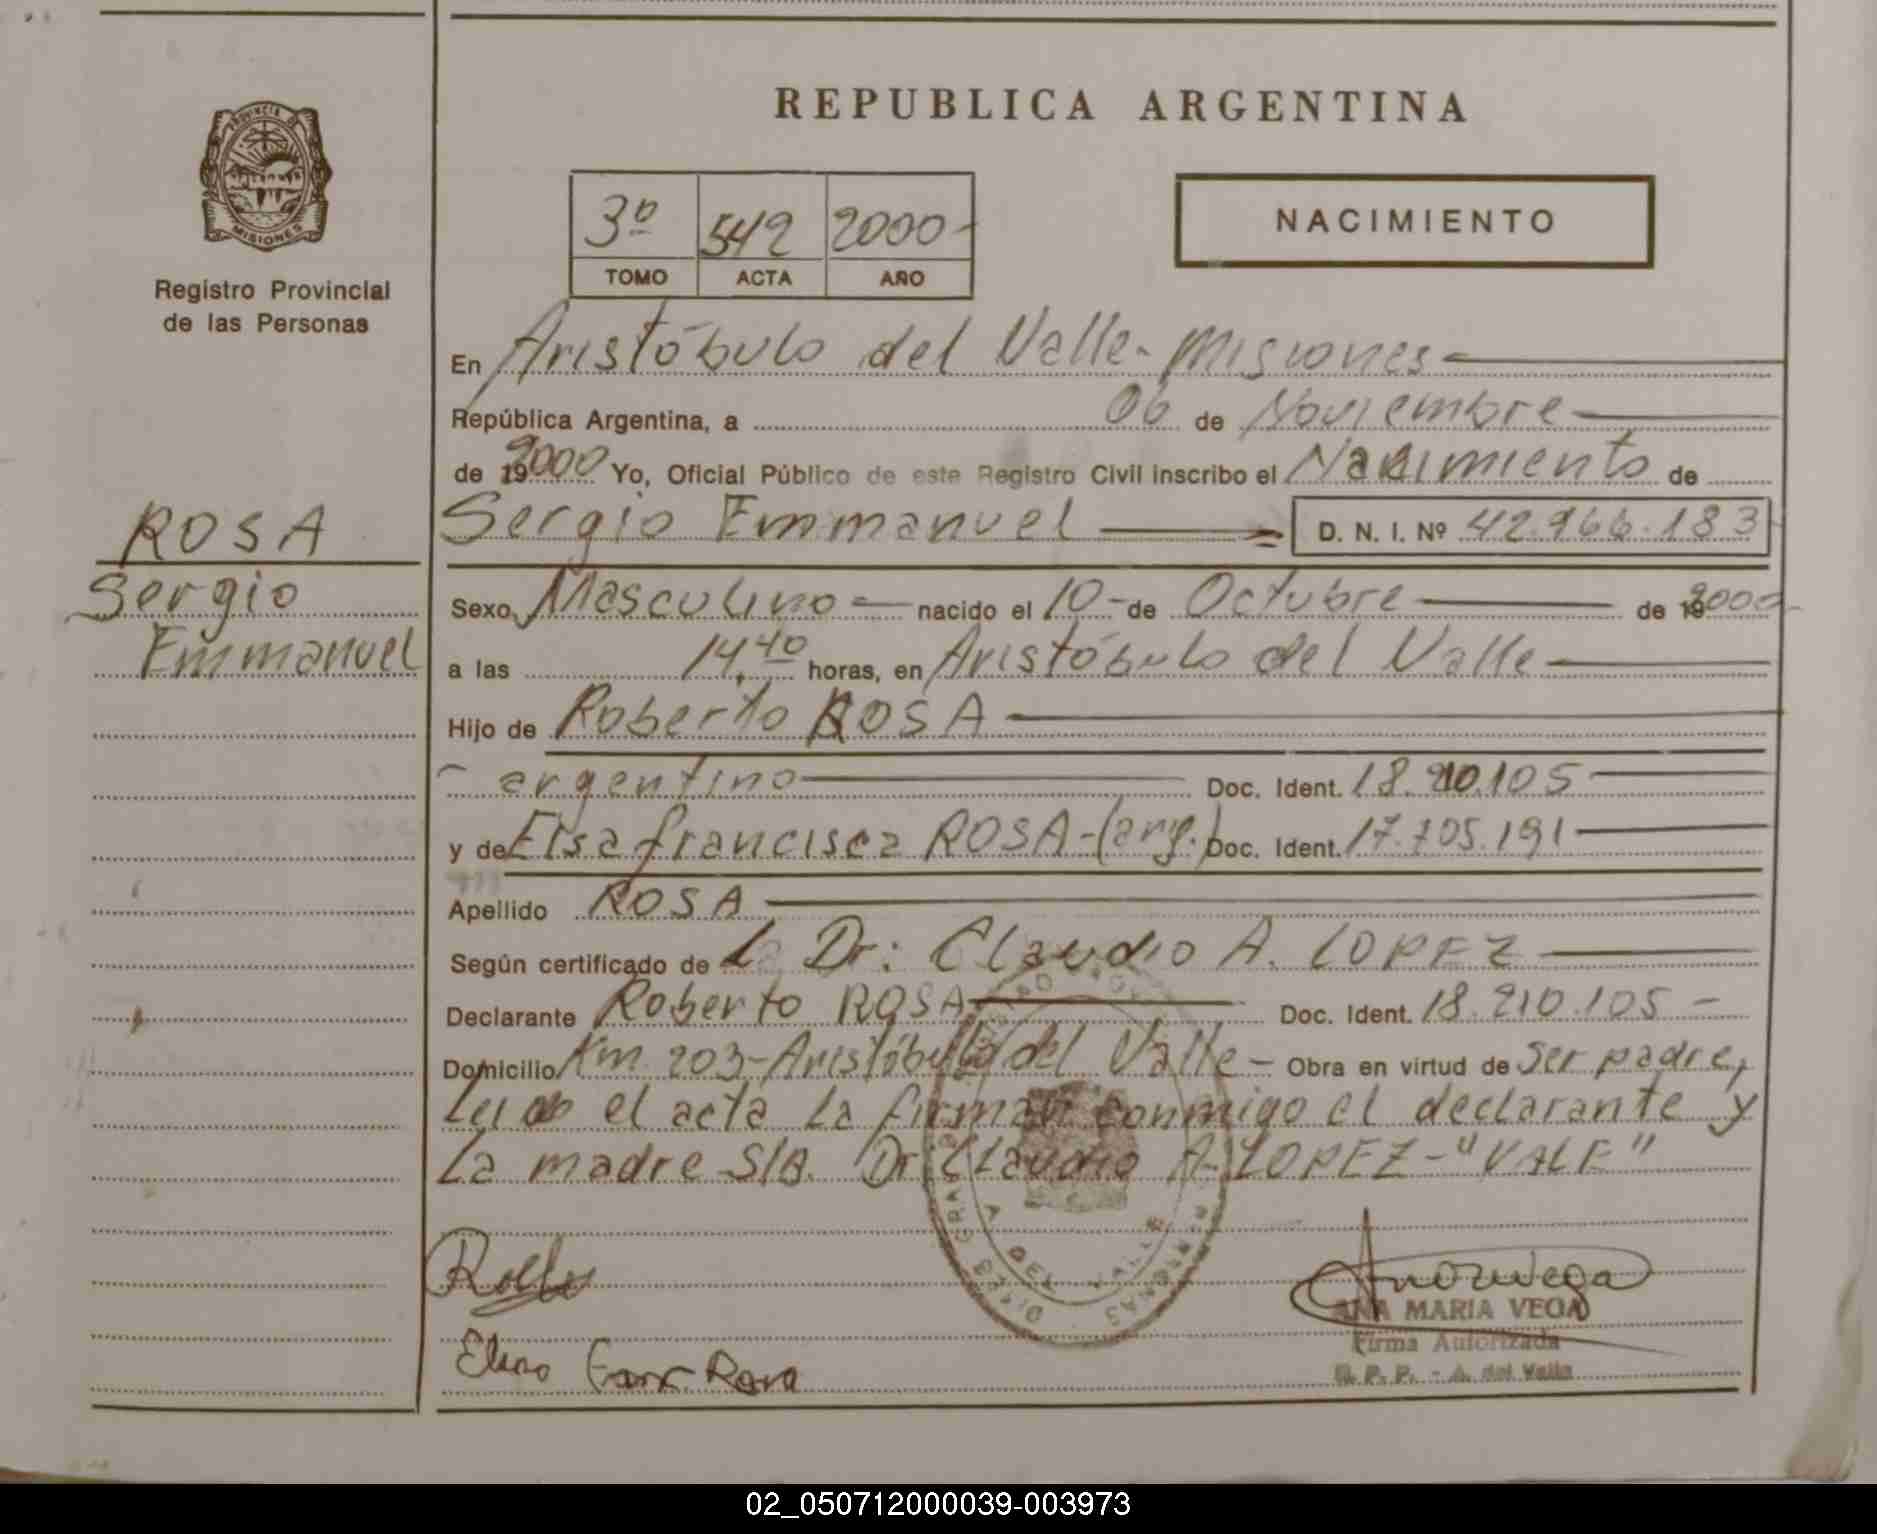 REPUBLICA ARGENTINA
PROVINCIA DE
MISIONES
Registro Provincial
de las Personas
3º 542 2000-
TOMO ACTA AÑO
NACIMIENTO
En Aristóbulo del Valle- Misiones
República Argentina, a 06 de Noviembre
de 192000 Yo, Oficial Público de este Registro Civil inscribo el Nacimiento de
Sergio Emmanuel D. N. I. Nº 42.966.183
ROSA
Sergio
Emmanuel
Sexo Masculino nacido el 10- de Octubre de 192000-
a las 14,40 horas, en Aristóbulo del Valle
Hijo de Roberto ROSA
- argentino Doc. Ident. 18.210.105
y de Elsa francisca ROSA-(arg.) Doc. Ident. 17.705.191
Apellido ROSA
Según certificado de Dr: Claudio A. LOPEZ
Declarante Roberto ROSA Doc. Ident. 18.210.105 -
Domicilio Km. 203-Aristóbulo del Valle- Obra en virtud de Ser padre,
Leido el acta la firman conmigo el declarante y
La madre S/B. Dr Claudio A. LOPEZ-"VALE"
DEL VALLE
ANA MARIA VEGA
Firma Autorizada
R. P. P. - A. del Valle
02_050712000039-003973